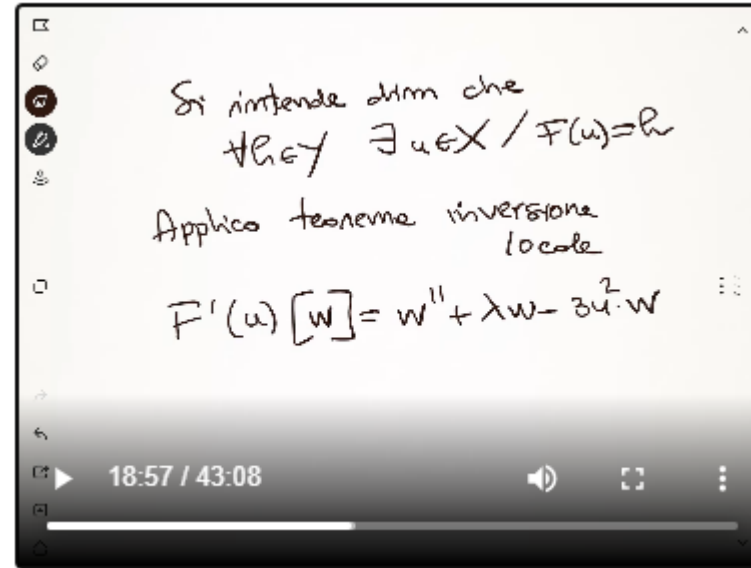 Si intende dim che
∀h∈Y ∃ u∈X / F(u)=h
Applico teorema inversione
locale
F'(u)[w]= w''+ λw- 3u²·w
18:57 / 43:08